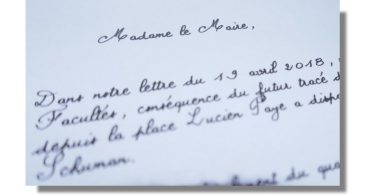 Madame le Maire,
Dans notre lettre du 19 avril 2018,
Facultés, conséquence du futur tracé d
depuis la place Lucien Paye a dispa
Schuman.